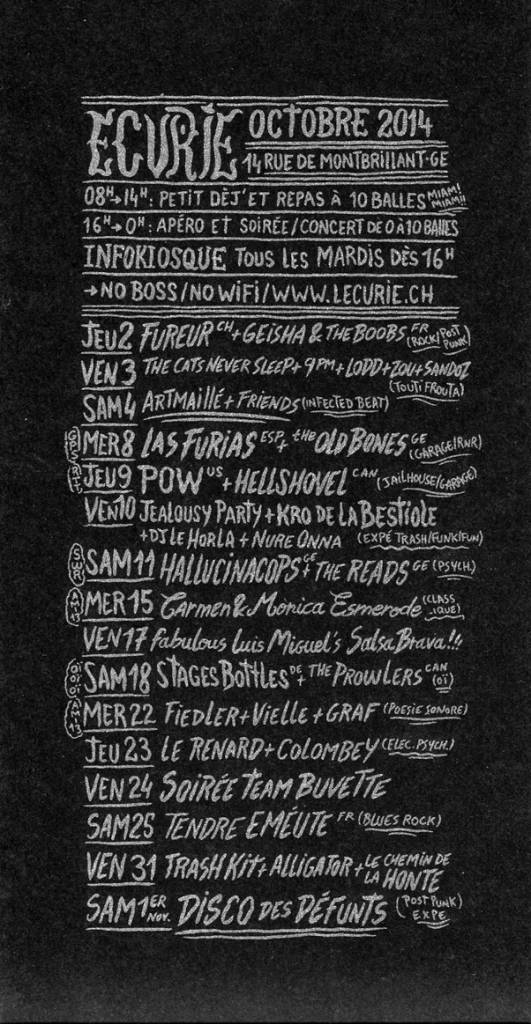 ECURIE OCTOBRE 2014
14 RUE DE MONTBRILLANT·GE
08H→14H: PETIT DÉJ' ET REPAS À 10 BALLES MIAM! MIAM!!
16H→0H: APÉRO ET SOIRÉE/CONCERT DE 0 À 10 BALLES
INFOKIOSQUE TOUS LES MARDIS DÈS 16H
→NO BOSS/NO WIFI/WWW.LECURIE.CH
JEU 2 FUREUR CH + GEISHA & THE BOOBS FR (ROCK/POST PUNK)
VEN 3 THE CATS NEVER SLEEP + 9PM + LODD + ZOU + SANDOZ
(TOUTI FROUTA)
SAM 4 ARTMAILLÉ + FRIENDS (INFECTED BEAT)
MER 8 LAS FURIAS ESP + THE OLD BONES GE (GARAGE/RNR)
JEU 9 POW US + HELLSHOVEL CAN (JAILHOUSE/GARAGE)
VEN 10 JEALOUSY PARTY + KRO DE LA BESTIOLE
+ DJ LE HORLA + NURE ONNA (EXPÉ TRASH/FUNK/FUN)
SWR SAM 11 HALLUCINACOPS GE + THE READS GE (PSYCH.)
AMR MER 15 Carmen & Monica Esmerode (CLASSIQUE)
VEN 17 Fabulous Luis Miguel's Salsa Brava!!!
SAM 18 STAGES BOTTLES DE + THE PROWLERS CAN (OÏ)
MER 22 FIEDLER + VIELLE + GRAF (POESIE SONORE)
JEU 23 LE RENARD + COLOMBEY (ELEC. PSYCH.)
VEN 24 SOIRÉE TEAM BUVETTE
SAM 25 TENDRE EMÉUTE FR (BLUES ROCK)
VEN 31 TRASH KIT + ALLIGATOR + LE CHEMIN DE LA HONTE
SAM 1ER NOV. DISCO DES DÉFUNTS (POST PUNK) EXPE